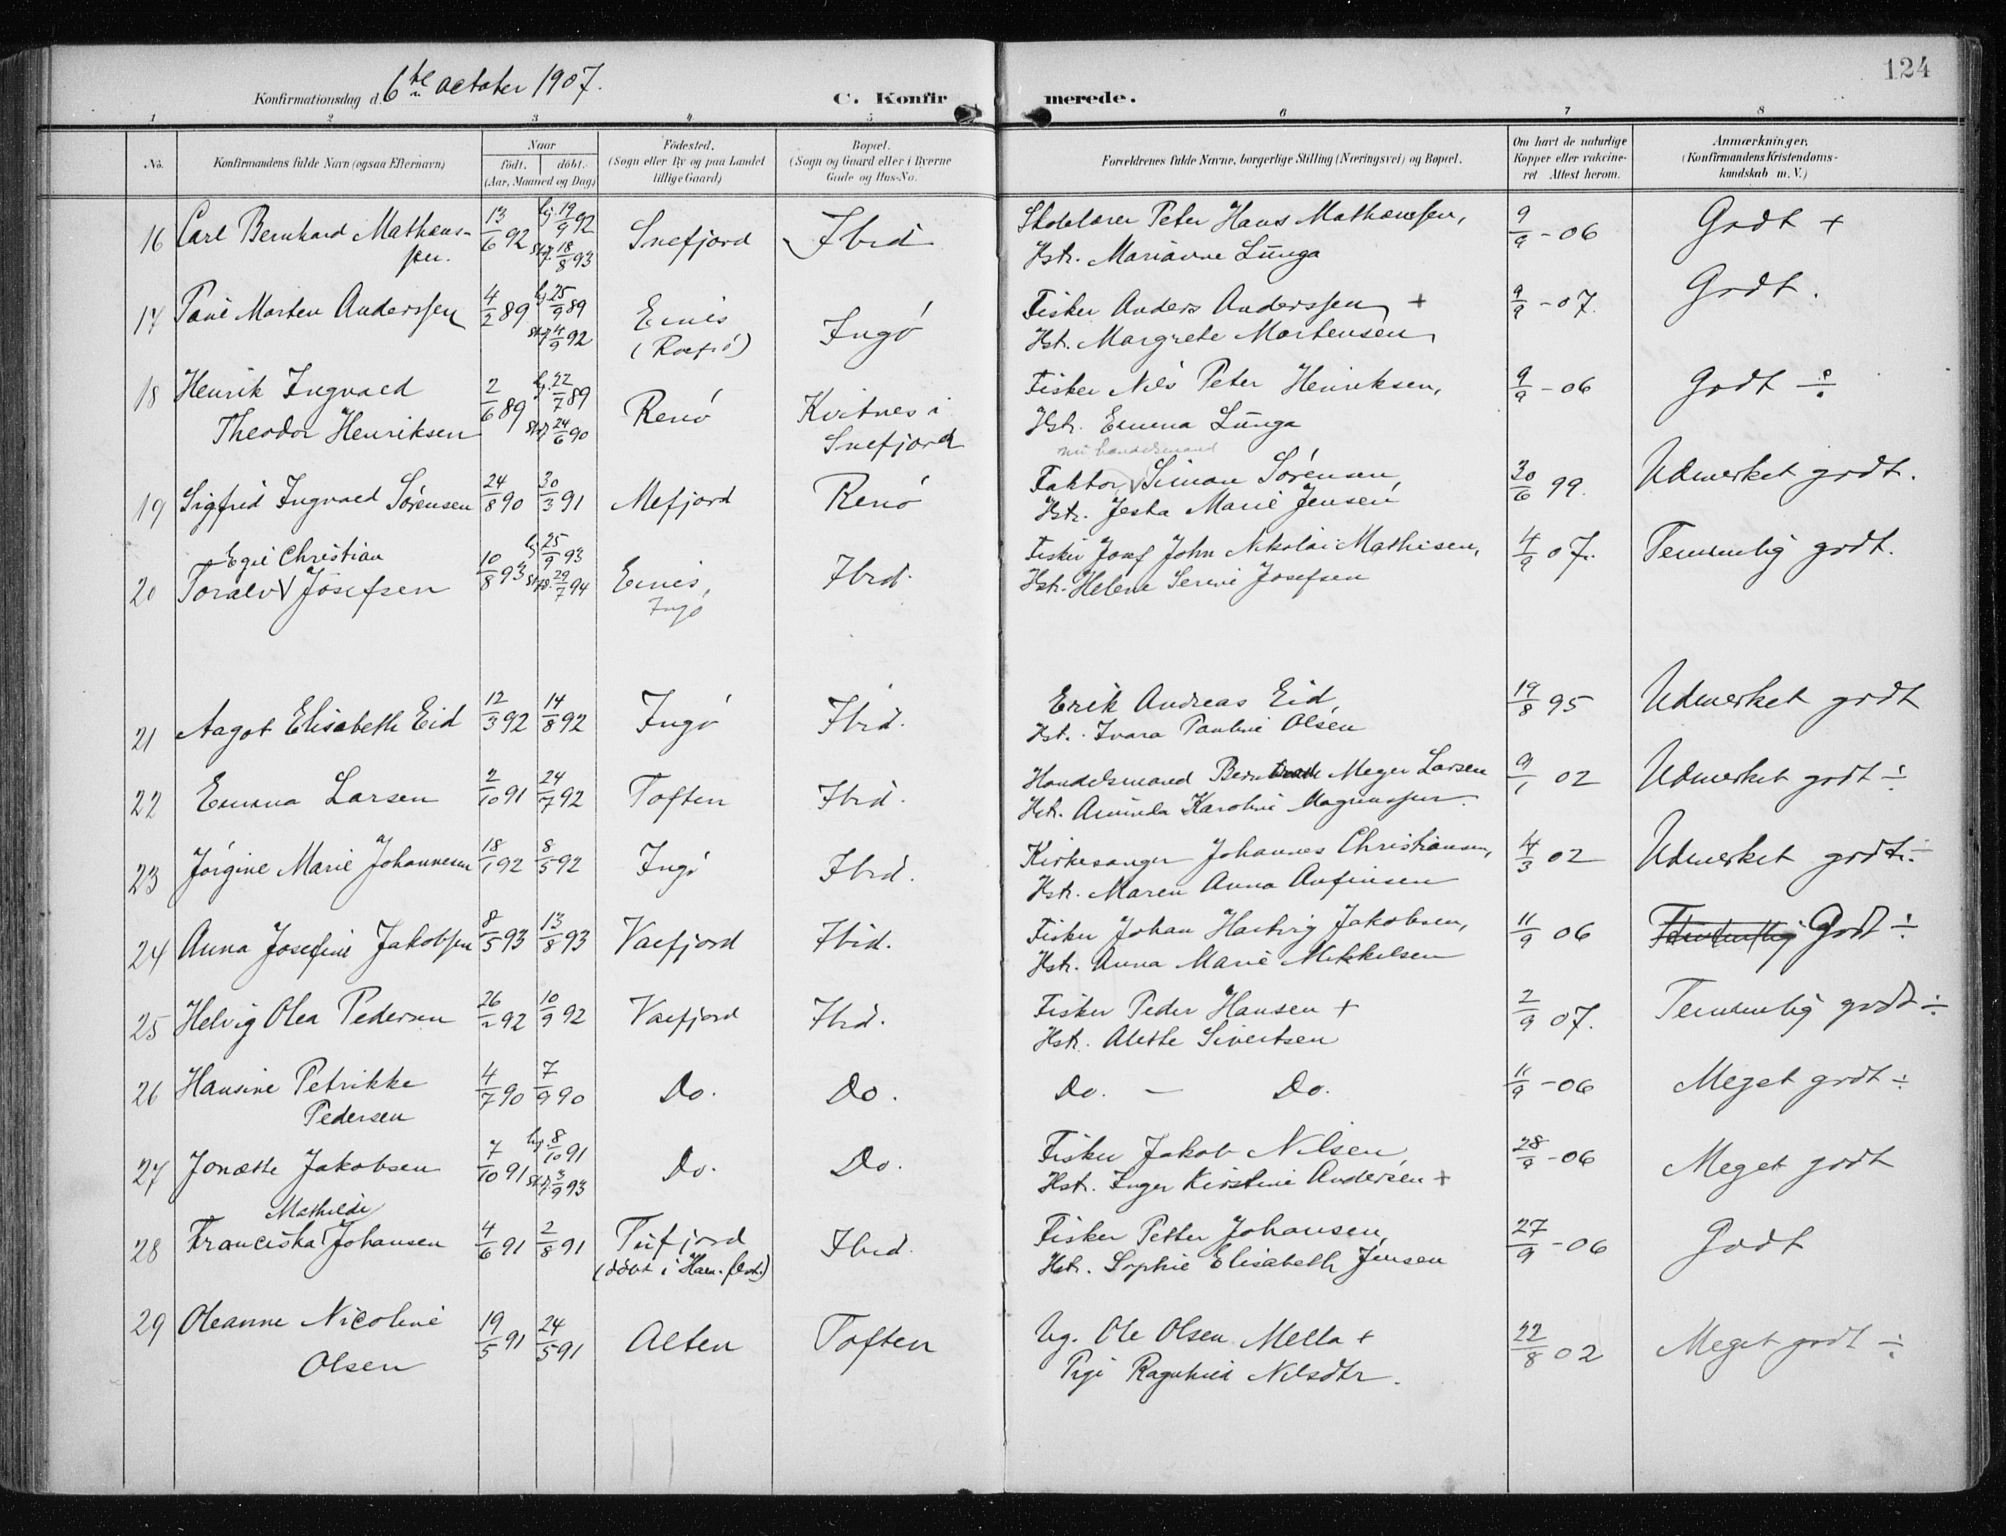 124
Konfirmationsdag d. 6te october 1907.
C. Konfirmerede.
1 2 3 4 5 6 7 8
No. Konfirmandens fulde Navn (ogsaa Efternavn)
Naar
født. døbt.
(Aar, Maaned og Dag)
Fødested.
(Sogn eller By og paa Landet
tillige Gaard)
Bopæl.
(Sogn og Gaard eller i Byerne
Gade og Hus-No.
Forældrenes fulde Navne, borgerlige Stilling (Næringsvei) og Bopæl.
Om havt de naturlige
Kopper eller vakcine-
ret Attest herom.
Anmærkninger.
(Konfirmandens Kristendoms-
kundskab m. V.)
16 Carl Bernhard Mathæus-
sen.
13/6 92
hj. 19/9 92
18/8 93
Snefjord
Ibid
Skolelærer Peter Hans Mathæussen,
Hstr. Marianne Lunga
9/9 - 06
Godt +
17 Morten Anderssen
4/2 89
hj. 25/9 89
4/9 92
(Rolfsø)
Ingø
Fisker Anders Anderssen +
Hst. Margrete Mortensen
9/9 - 07.
Godt.
18 Henrik Ingvald
Theodor Henriksen
2/6 89
hj. 22/7 89
24/6 90
Renø
Kvitnes i
Snefjord
Fisker Nils Peter Henriksen,
Hst. Emma Lunga
9/9 - 06
Godt ÷
19 Sigfrid Ingvald Sørensen
24/8 90
30/3 91
Mefjord
Renø
nu handelsmand
Faktor Simon Sørensen,
Hstr. Marie Jensen
30/6 99.
Udmerket godt.
20 Egil Christian
Toralv Josefsen
10/8 93
hj. 25/9 93
29/7 94
Ingø
Ibid.
Fisker Josef John Nikolai Mathisen,
Hst. Helene Serine Josefsen
4/9 07.
Temmelig godt.
21 Aagot Elisabeth Eid
12/3 92
14/8 92
Ingø
Ibid.
Erik Andreas Eid,
Hst. Ivara Pauline Olsen
19/8 95
Udmerket godt
22 Emma Larsen
2/10 91
24/7 92
Toften
Ibid.
Handelsmand Meyer Larsen
Hstr. Aminda Karoline Magnussen.
9/1 02
Udmerket godt ÷
23 Jørgine Marie Johannesen
18/1 92
8/5 92
Ingø
Ibid.
Kirkesanger Johannes Christiansen,
Hstr. Maren Anna Anfinsen
4/3 02
Udmerket godt. ÷
24 Anna Josefine Jakobsen
8/5 93
13/8 93
Valfjord
Ibid.
Fisker Johan Hartvig Jakobsen,
Hstr. Anna Marie Mikkelsen
11/9 06
Temmelig Godt ÷
25 Helvig Olea Pedersen
26/2 92
10/9 92
Valfjord
Ibid.
Fisker Peder Hansen +
Hstr. Alette Sivertsen
2/9 07.
Temmelig godt ÷
26 Hansine Petrikke
Pedersen
4/7 90
7/9 90
Do.
Do.
Do. — Do.
11/9 - 06
Meget godt ÷
27 Jonætte Jakobsen
7/10 91
hj. 8/10 91
3/9 93
Do.
Do.
Fisker Jakob Nilsen,
Hstr. Inger Kirstine Andersen +
28/9 - 06
Meget godt
28 Mathilde
Franciska Johansen
4/6 91
2/8 91
Tufjord
(døbt i Ham. )
Ibid.
Fisker Petter Johansen,
Hstr. Sophie Elisabeth Jensen
27/9 - 06
Godt
29 Oleanne Nicoline
Olsen
19/5 91
24/5 91
Alten
Toften
Ug. Ole Olsen Mella +
Pige Ragnhild Nilsdtr.
22/8 02
Meget godt ÷